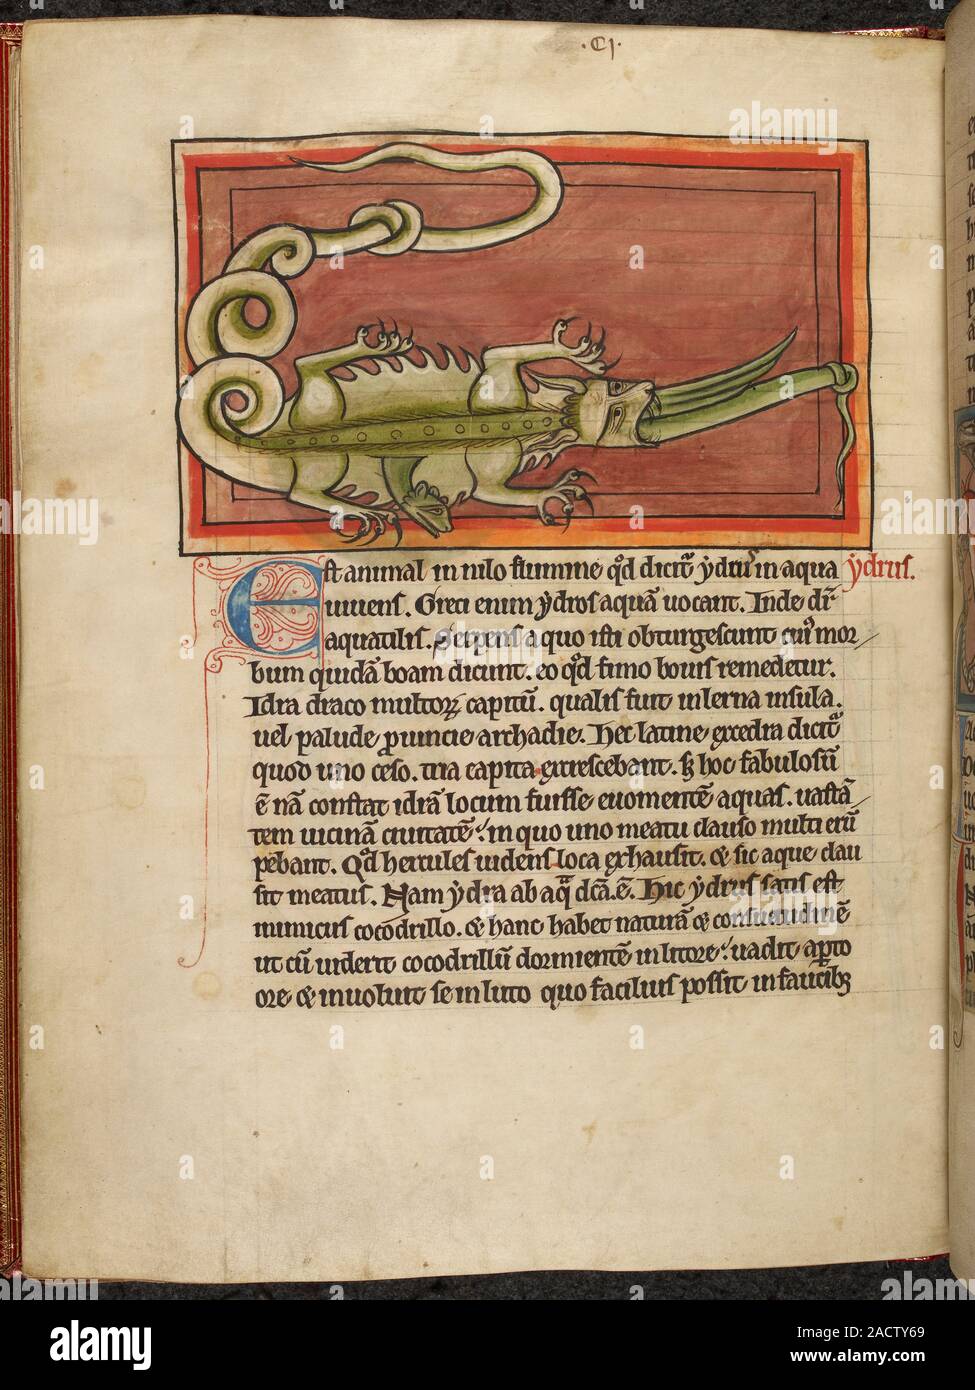 ·CJ·
Est animal in nilo flumine q̄d dicit᷑ ydrus in aqua ydrus.
uiuens. Greci enim ydros aquā uocant. Inde dr̄
aquatilis. Serpens a quo isti obturgescunt cui᷒ mor
bum quidā boam dicunt. eo q̄d fimo bouis remedetur.
Idra draco multoꝝ capitū. qualis fuit in lerna insula.
uel palude ꝓuincie archadie. Hec latine excedra dicit᷑
quod uno ceso. tria capita excrescebant. sꝫ hoc fabulosū
ē nā constat idrā locum fuisse euomentē aquas. uastā
tem uicinā ciuitatē. in quo uno meatu clauso multi erū
pebant. Qd̄ hercules uidens loca exhausit. & sic aque clau
sit meatus. Nam ydra ab aq̄ dc̄a. ē. Hic ydrus satis est
inimicus cocodrillo. & hanc habet naturā & consuetudinē
ut cū uiderit cocodrillū dormientē in litore. uadit aꝑto
ore & inuoluit se in luto quo facilius possit in faucibꝫ
alamy
Image ID: 2ACTY69
www.alamy.com